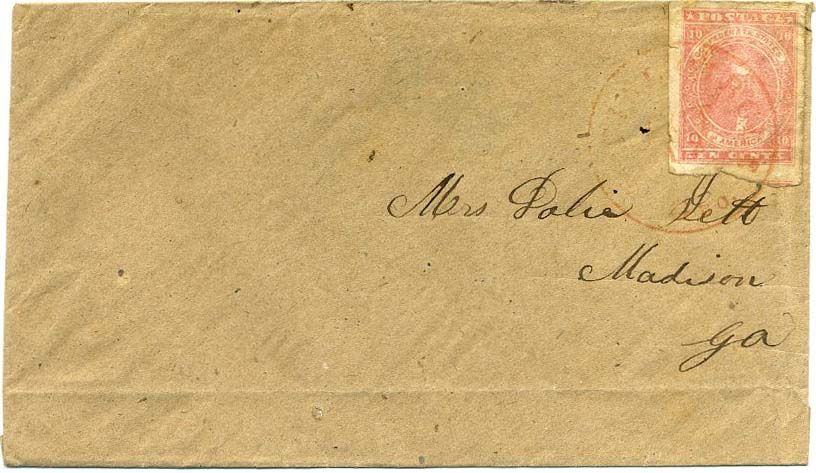 POSTAGE
10 10
CONFEDERATE STATES
OF AMERICA
10 10
TEN CENTS
Mrs Dolie Jett
Madison
Ga